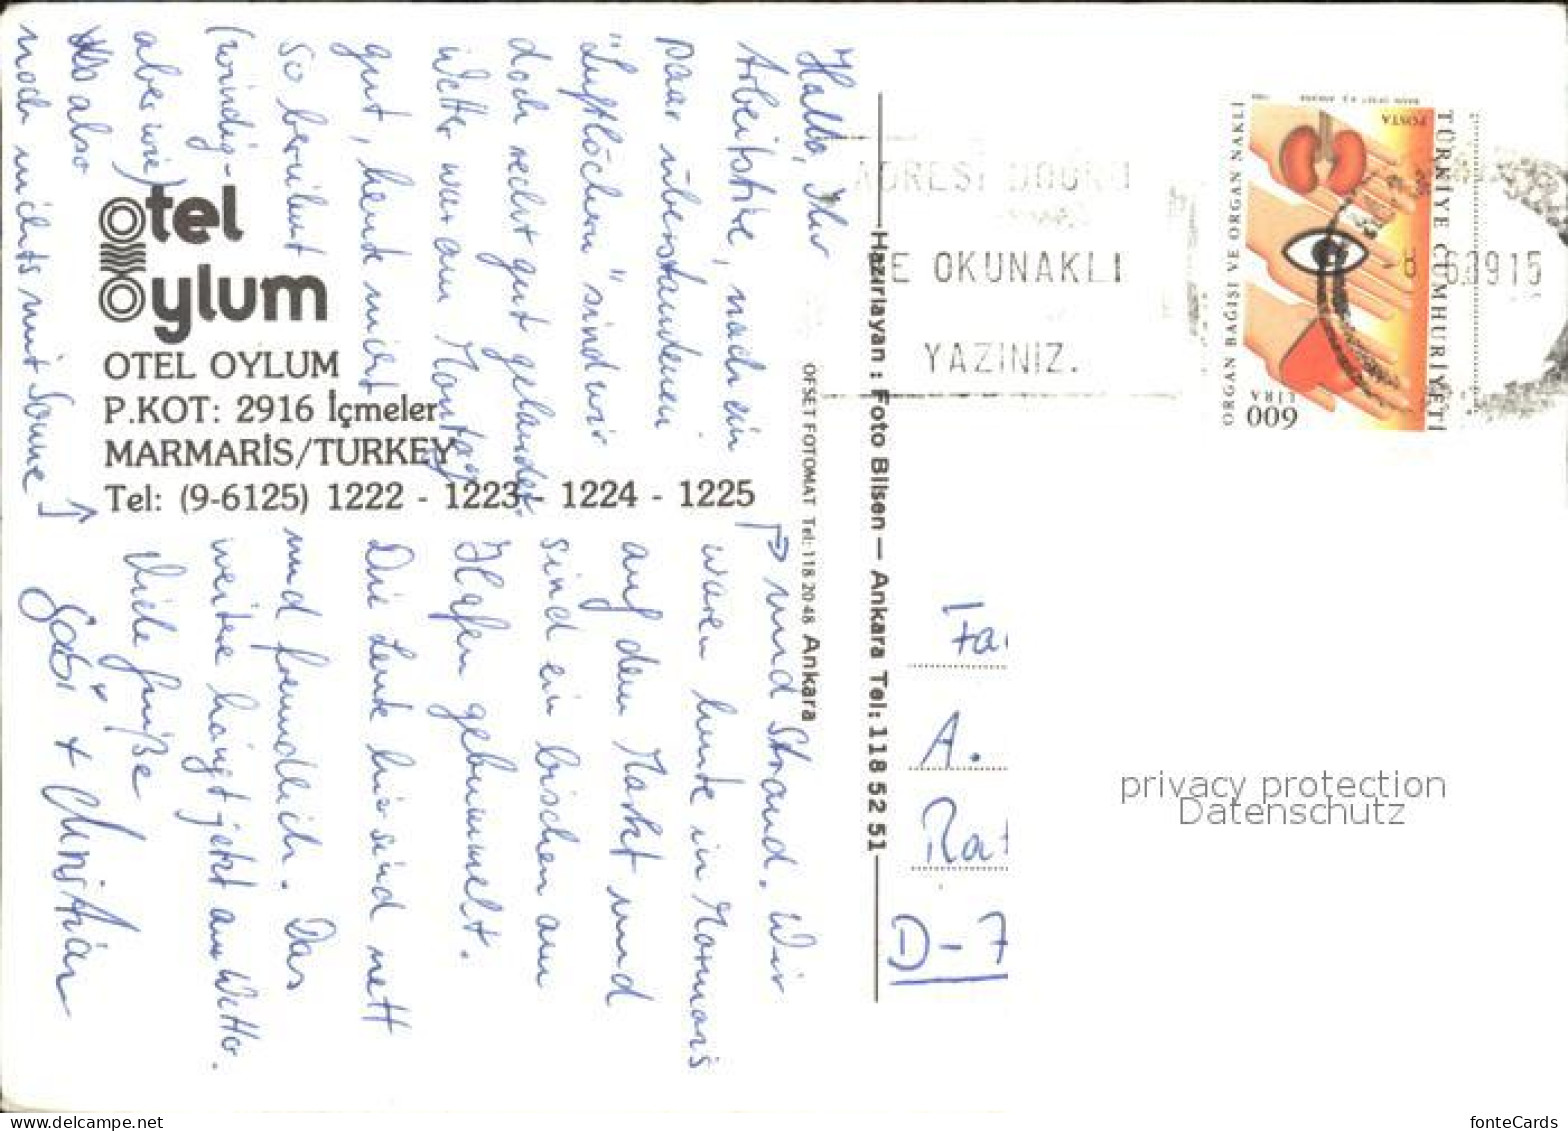 Hallo, Ihr
Arbeitstire, nach ein
paar überstandenen
"Luftlöchern" sind wir
doch recht gut gelandet.
Wetter war am Montag
gut, heute nicht
so berühmt
(windig -
aber wie)
Also also
noch nichts mit Sonne!
und Strand. Wir
waren heute in Marmaris
auf dem Markt und
sind ein bischen am
Hafen gebummelt.
Die Leute hier sind nett
und freundlich. Das
weitere hängt jetzt am Wetter.
Viele Grüße
Gabi + Christian
otel
oylum
OTEL OYLUM
P.KOT: 2916 İçmeler
MARMARİS/TURKEY
Tel: (9-6125) 1222 - 1223 - 1224 - 1225
OFSET FOTOMAT Tel: 118 20 48 Ankara
Hazırlayan : Foto Bilsen — Ankara Tel: 118 52 51
ADRESİ DOĞRU
VE OKUNAKLI
YAZINIZ.
TÜRKİYE CUMHURİYETİ
POSTA
ORGAN BAĞIŞI VE ORGAN NAKLİ
600
LİRA
A.
D-7
privacy protection
Datenschutz
www.delcampe.net
fonteCards